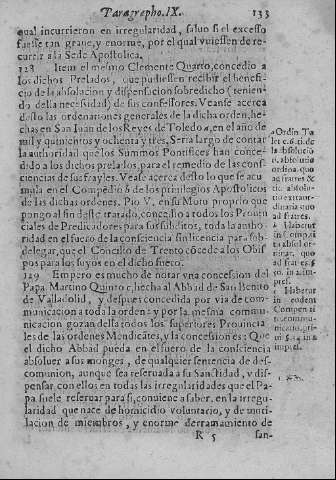 Paragrapho. IX. 133
qual incurrieron en irregularidad, saluo si el excesso
fuesse tan graue, y enorme, por el qual vuiessen de re-
currir a la Sede Apostolica.
128 Item el mesmo Clemente Quarto, concedio a
los dichos Prelados, que pudiessen recibir el benefi-
cio de la absolucion y dispensacion sobredicho (tenien-
do della necessidad) de sus confessores. Veanse acerca
desto las ordenationes generales de la dicha orden, he-
chas en San Iuan de los Reyes de Toledo a, en el año de
mil y quinientos y ochenta y tres. Seria largo de contar
la authoridad que los Summos Pontifices han conce-
dido a los dichos prelados, para el remedio de las cons-
ciencias de sus frayles. Vease acerca desto lo que se acu-
mula en el Compendio b de los priuilegios Apostolicos
de las dichas ordenes. Pio V. en su Motu proprio que
pongo al fin deste tratado, concedio a todos los Prouin
ciales de Predicadores para sus subditos, toda la autho-
ridad en el fuero de la consciencia sin licencia para sub-
delegar, que el Concilio de Trento cõcede a los Obis
pos para los suyos en el dicho fuero.
129 Empero es mucho de notar vna concession del
Papa Martino Quinto c, hecha al Abbad de San Benito
de Valladolid, y despues concedida por via de com-
municacion a toda la orden: y por la mesma commu-
nicacion gozan della todos los superiores Prouincia
les de las ordenes Mendicãtes, y la concession es: Que
el dicho Abbad pueda en el fuero de la consciencia
absoluer a sus monges, de qualquier sentencia de des-
comunion, aunque sea reseruada a su Sanctidad, y dis-
pensar con ellos en todas las irregularidades que el Pa-
pa suele reseruar para si, conuiene a saber, en la irregu-
laridad que nace de homicidio voluntario, y de muti-
lacion de miembros, y enorme derramamiento de
R 5 san-
a Ordin To
let. c. 6. ti. de
absolutio
ordina. quo
ad fratres &
tio. absolu-
ad fratres.
b Habetur
ad fratres §
Habetur
in eodem
Compen